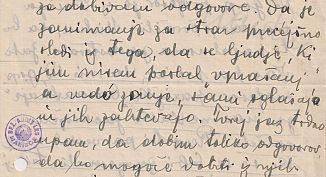 za dobivanje odgovorov. Da je
zanimanje za stvar precejšno
sledi iz tega, da se ljudje, ki
jim nisem poslal vprašanj
a vedó zanje, sami oglašajo
in jih zahtevajo. Torej jaz trdno
upam, da dobim toliko odgovorov
da bo mogoče dobiti iz njih